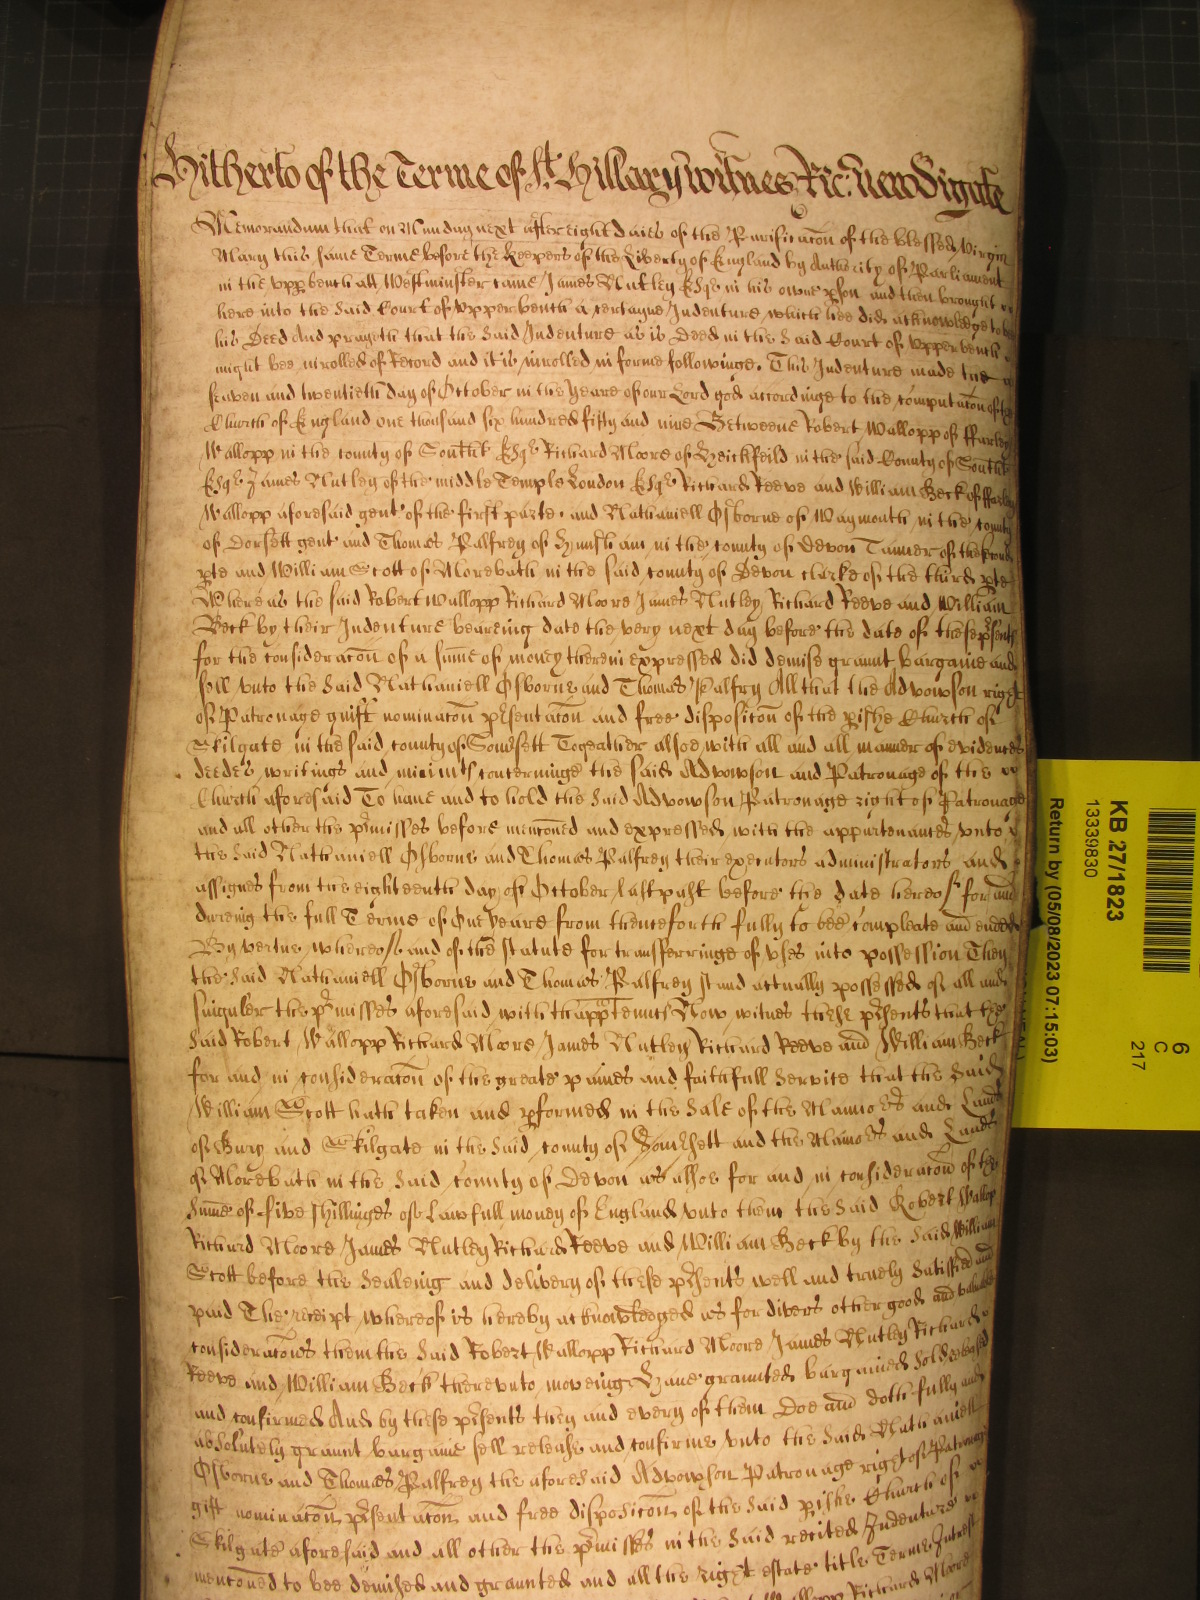 Hitherto of the Terme of St. Hillary witnes Ric: Newdigate
Memorandum that on Munday next after eight daies of the Purificacon of the blessed Virgin
Mary this same Terme before the Keepers of the Liberty of England by Authority of Parliament
in the upp bench att Westminster came James Nutley Esqr in his owne pson and then brought
here into the said Court of upper bench a certayne Indenture which hee did acknowledge to bee
his Deed And prayeth that the said Indenture as is Deed in the said Court of upper bench
might bee inrolled of Record and it is inrolled in forme followinge. This Indenture made the
seaven and twentieth day of October in the yeare of our Lord god accordinge to the computacon of the
Church of England one thousand six hundred fifty and nine Betweene Robert Wallopp of ffarley
Wallopp in the county of Southt Esqr Richard Moore of Heickfeild in the said County of Southt
Esqr James Nutley of the middle Temple London Esqr Richard Reeve and William Beck of ffarley
Wallopp aforesaid gent of the first parte. and Nathaniell Osborne of Waymouth in the county
of Dorsett gent and Thomas Palfrey of Hunsham in the county of Devon Tanner of the second
pte and William Scott of Morebath in the said county of Devon clarke of the third pte
Whereas the said Robert Wallopp Richard Moore James Nutley Richard Reeve and William
Beck by their Indenture beareing date the very next day before the date of these psents
for the consideracon of a sume of money therein expressed did demise graunt bargaine and
sell unto the said Nathaniell Osborne and Thomas Palfry All that the Advowson right
of Patronage guift nominacon psentacon and free disposicon of the pishe Church of
Skilgate in the said county of Somsett Togeather alsoe with all and all manner of evidences
deedes writings and minimts concerninge the said Advowson and Patronage of the
Church aforesaid To have and to hold the said Advowson Patronage right of Patronage
and all other the pmisses before menconed and expressed with the appurtenances unto
the said Nathaniell Osborne and Thomas Palfrey their executors administrators and
assignes from the eighteenth day of October last past before the date hereof for and
dureing the full Terme of One yeare from thenceforth fully to bee compleate and ended
By vertue whereof and of the statute for transferringe of uses into possession They
the said Nathaniell Osborne and Thomas Palfrey stand actually possessed of all and
singuler the pmisses aforesaid with thapptenncs Now witnes these psents that the
said Robert Wallopp Richard Moore James Nutley Richard Reeve and William Beck
for and in consideracon of the greate paines and faithfull service that the said
William Scott hath taken and pformed in the sale of the Mannors and Lands
of Bury and Skilgate in the said county of Somersett and the Mannors and Lands
of Morebath in the said county of Devon as alsoe for and in consideracon of the
sume of five shillinges of Lawfull money of England unto them the said Robert Wallop
Richard Moore James Nutley Richard Reeve and William Beck by the said William
Scott before the sealeing and delivery of these psents well and truely satisfied and
paid The receipt whereof is hereby acknowledged as for divers other good and valuable
consideracons them the said Robert Wallopp Richard Moore James Nutley Richard
Reeve and William Beck thereunto moveing Have graunted bargained sold released
and confirmed And by these psents they and every of them Doe and doth fully and
absolutely graunt bargaine sell release and confirme unto the said Nathaniell
Osborne and Thomas Palfrey the aforesaid Advowson Patronage right of Patronage
gift nominacon psentacon and free disposicon of the said pishe Church of
Skilgate aforesaid and all other the pmisses in the said recited Indenture
menconed to bee demised and graunted and all the right estate title Terme Interest
Wallopp Richard Moore
KB 27/1823
13339830
Return by (05/08/2023 07:15:03)
6
C
217